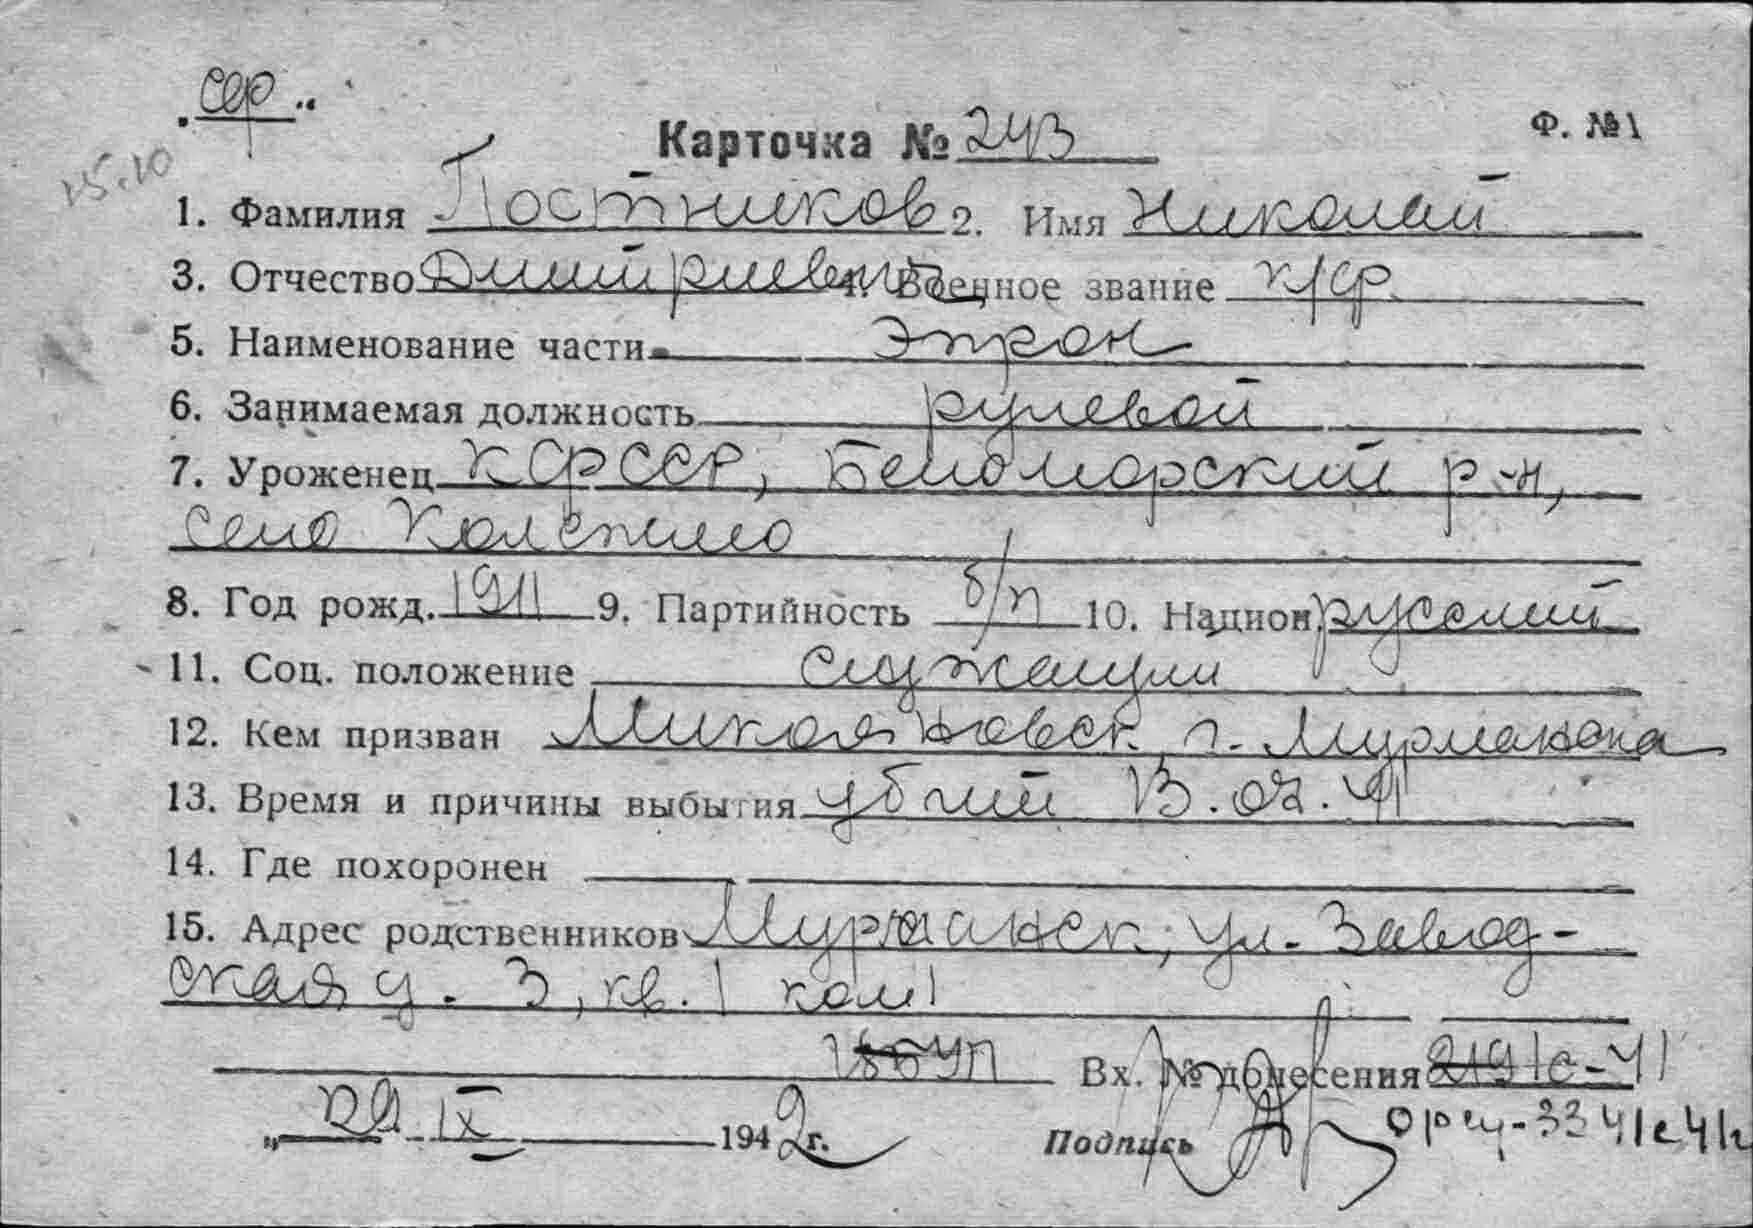 сер
Карточка № 243
Ф. №1
25.10
1. Фамилия Постников 2. Имя Николай
3. Отчество Дмитриевич 4. Военное звание к/ф
5. Наименование части Эпрон
6. Занимаемая должность рулевой
7. Уроженец КФССР, Беломорский р-н,
село Колежмо
8. Год рожд. 1911 9. Партийность б/п 10. Национ. русский
11. Соц. положение служащий
12. Кем призван Микояновск. г. Мурманска
13. Время и причины выбытия убит 13.07.41
14. Где похоронен
15. Адрес родственников Мурманск, ул. Завод-
ская д. 3, кв. 1 ком 1
Вх. № донесения 2191с-41
„ 29 IX 1942 г. Подпись 3341с41г